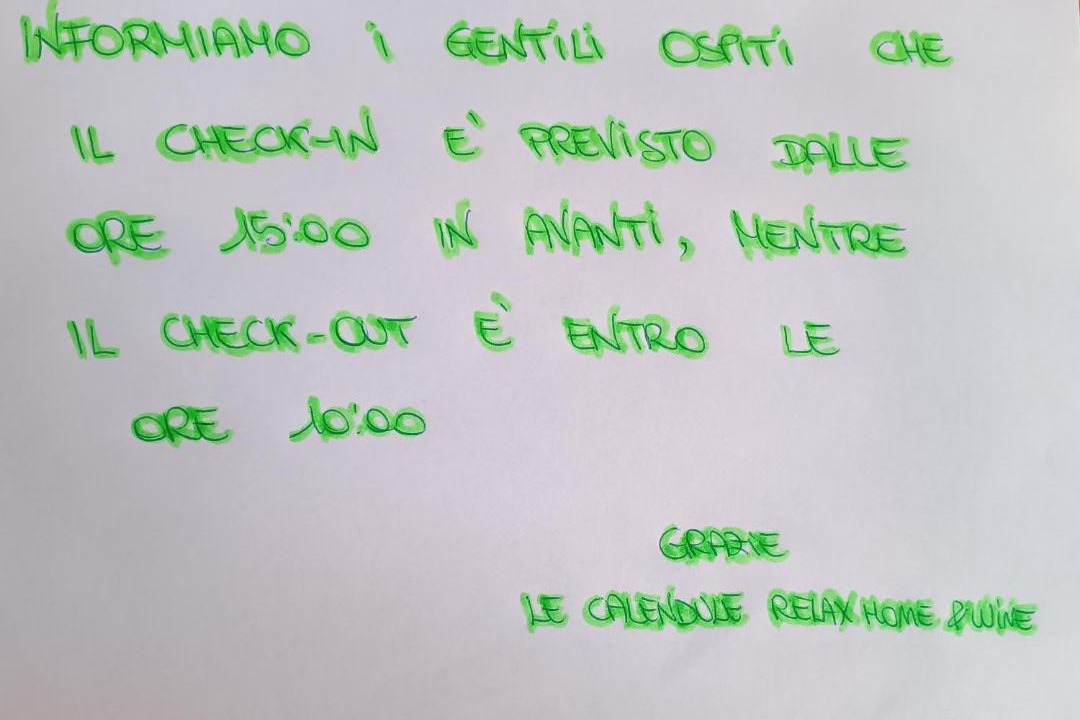 INFORMIAMO i GENTiLi OSPiTi CHE
IL CHECK-IN E' PREViSTO DALLE
ORE 15:00 IN AVANTi, MENTRE
IL CHECK-OUT E' ENTRO LE
ORE 10:00
GRAZIE
LE CALENDULE RELAX HOME & WiNE